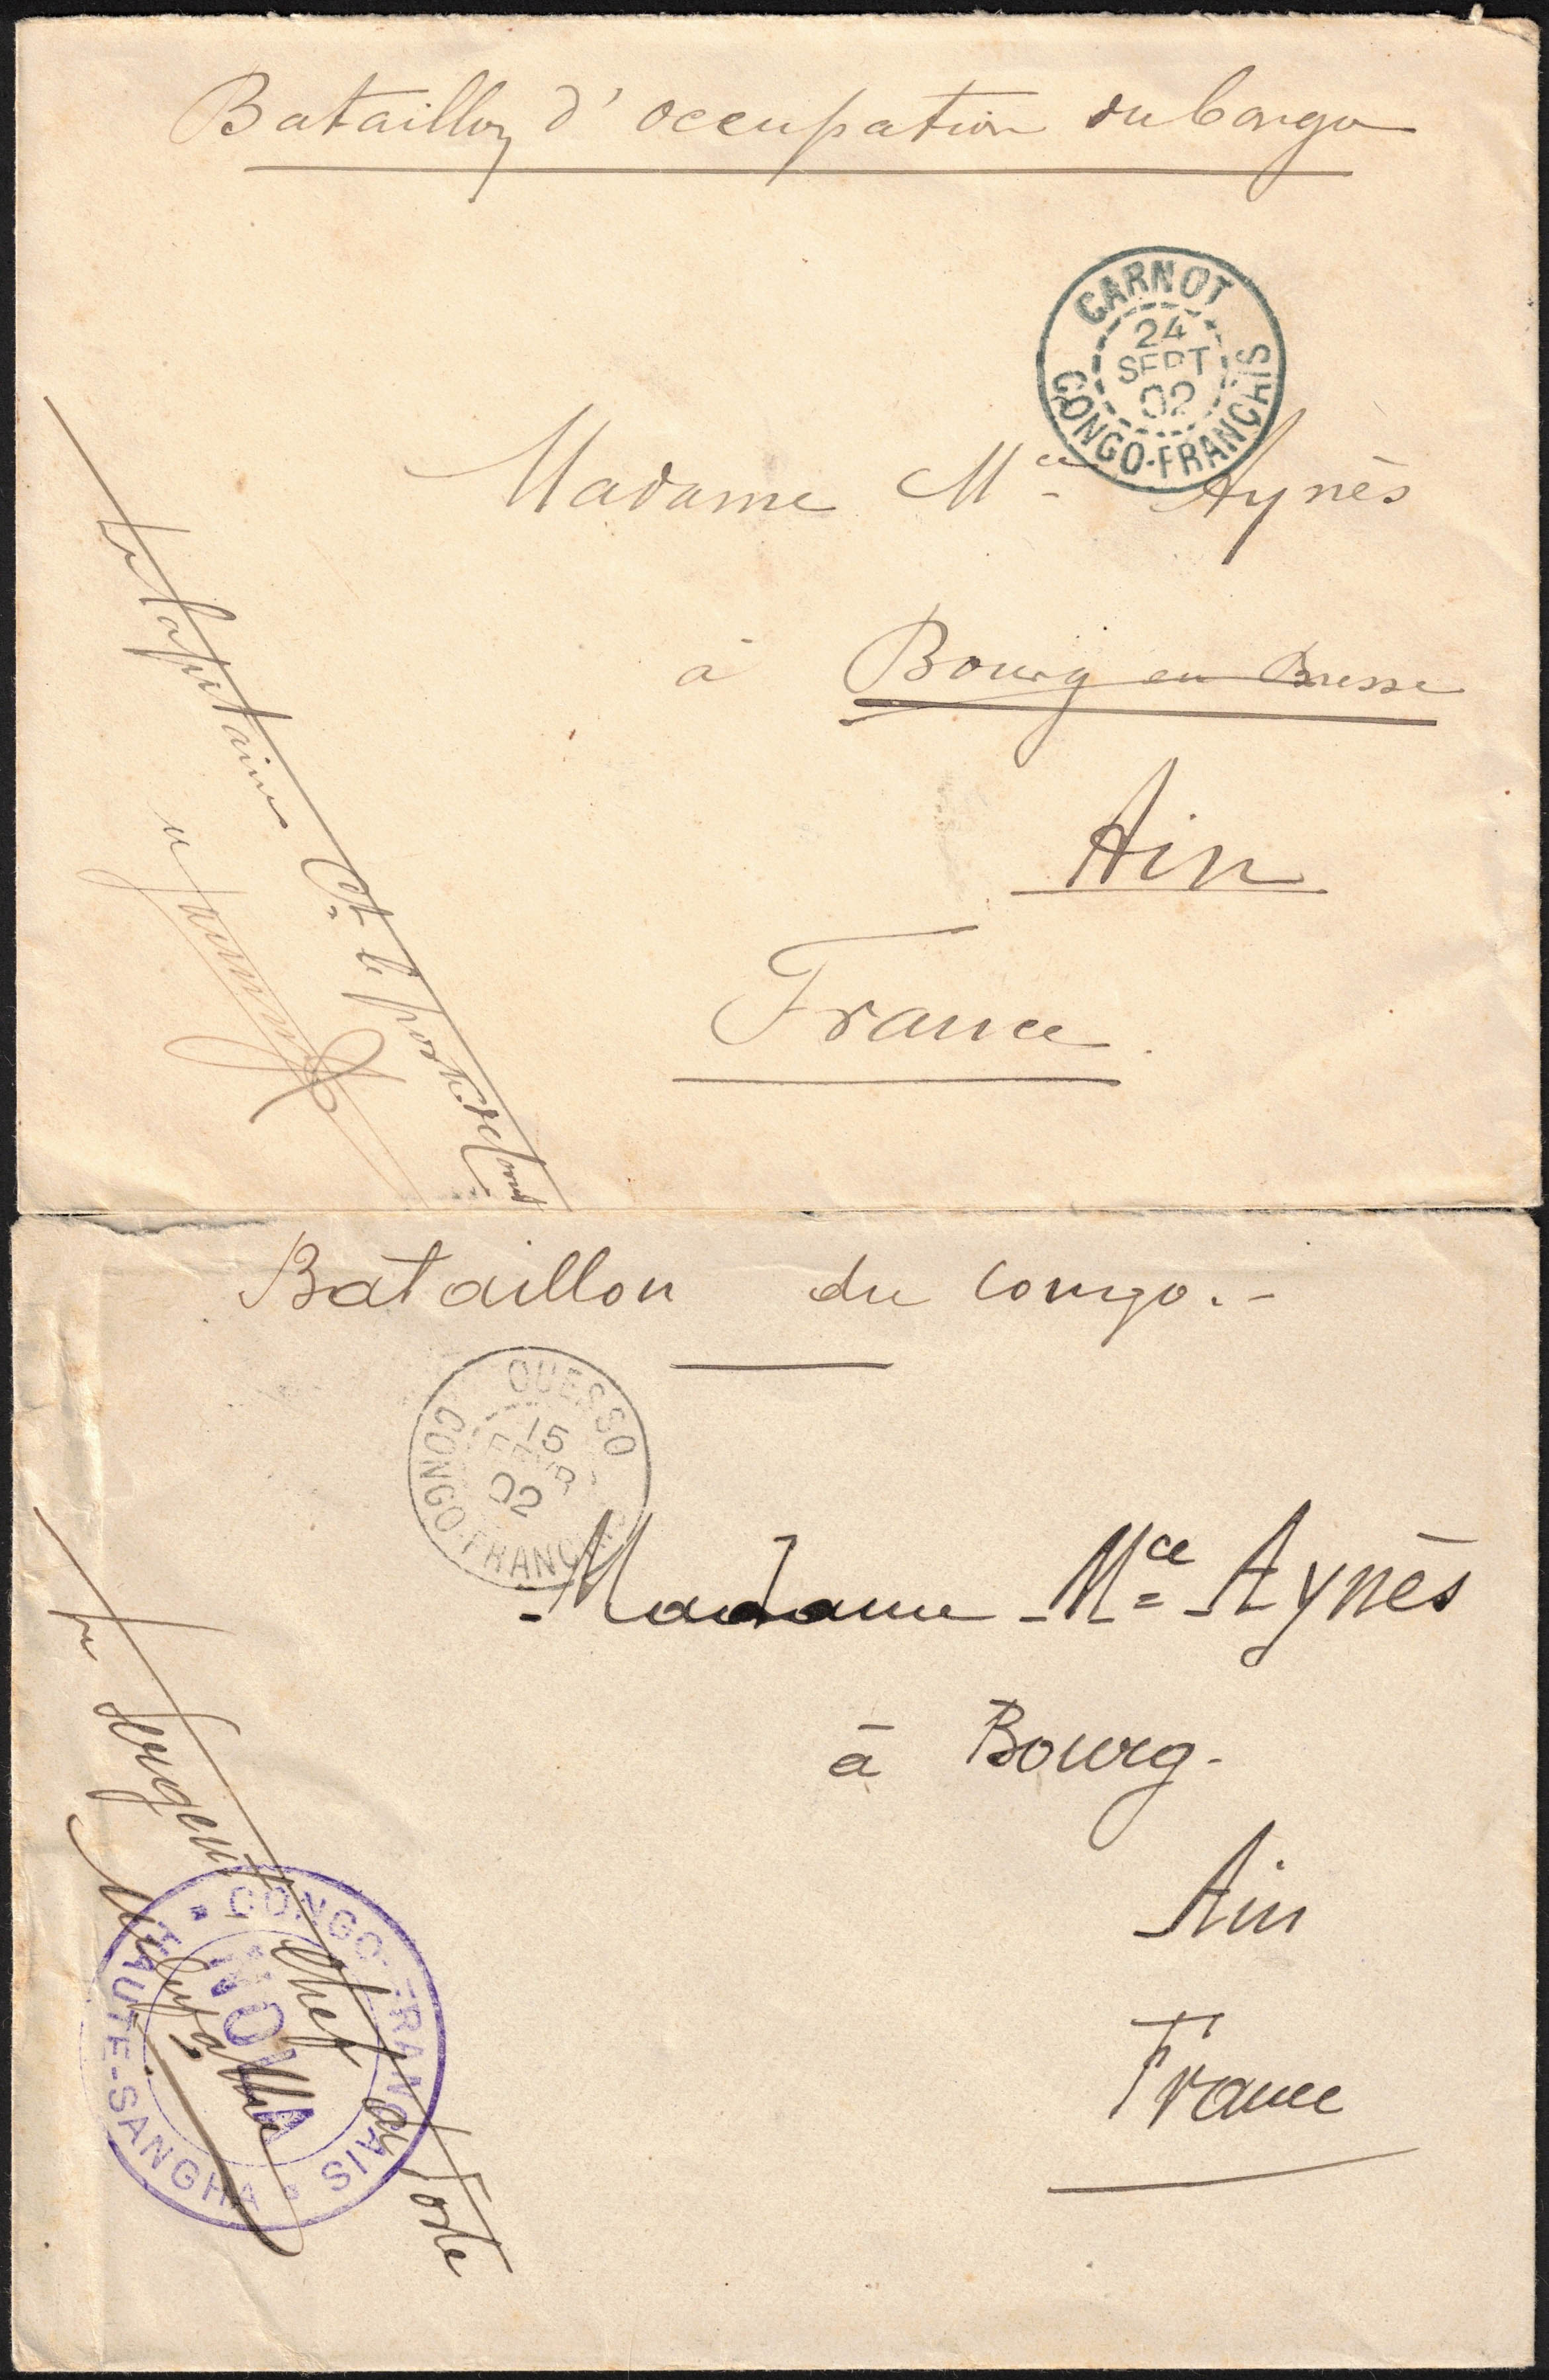 Bataillon d'occupation du Congo
CARNOT
24
SEPT
02
CONGO-FRANÇAIS
Madame Mce Aynès
à Bourg en Bresse
Ain
France
Le Capitaine Ct le poste de Carnot
Bataillon du Congo.-
OUESSO
15
FEVR
02
CONGO-FRANÇAIS
Madame Mce Aynès
à Bourg.
Ain
France
Le Sergent Chef de Poste
CONGO-FRANÇAIS
NOLA
HAUTE-SANGHA